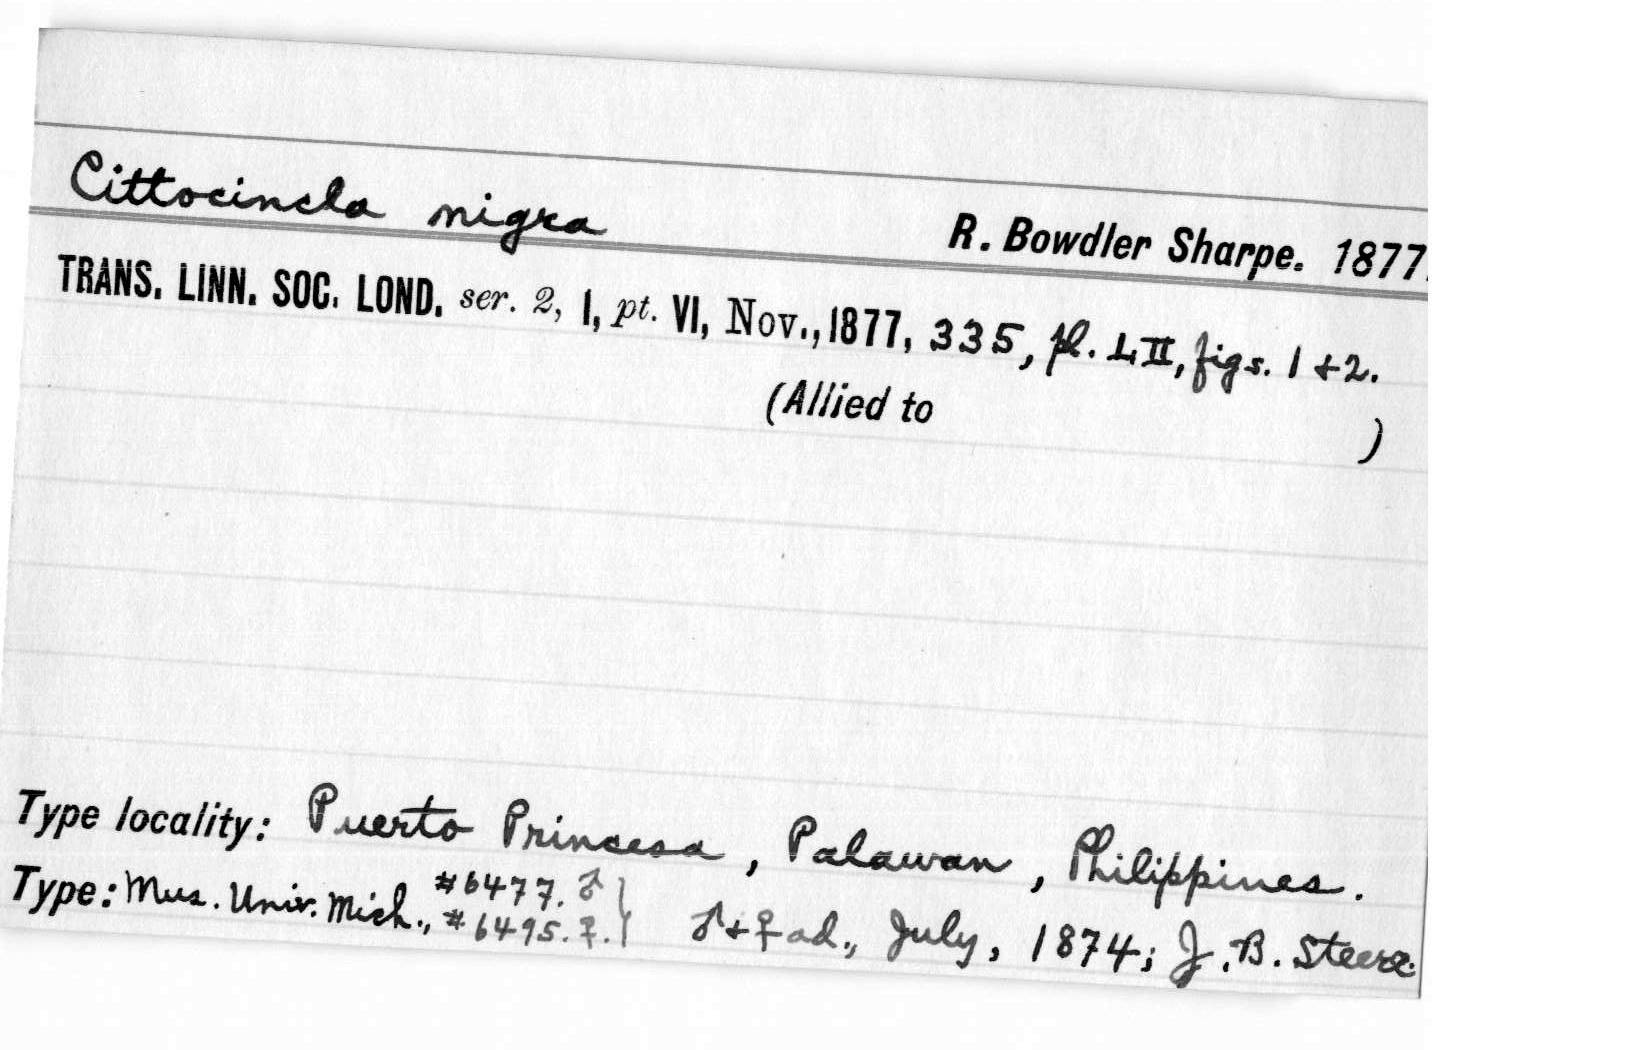 Cittocincla nigra R. Bowdler Sharpe. 1877.
TRANS. LINN. SOC. LOND. ser. 2, I, pt. VI, Nov., 1877, 335, pl. LII, figs. 1 + 2.
(Allied to )
Type locality: Puerto Princesa, Palawan, Philippines.
Type: Mus. Univ. Mich., #6477. ♂
#6495. ♀. } ♂ + ♀ ad., July, 1874; J. B. Steere.